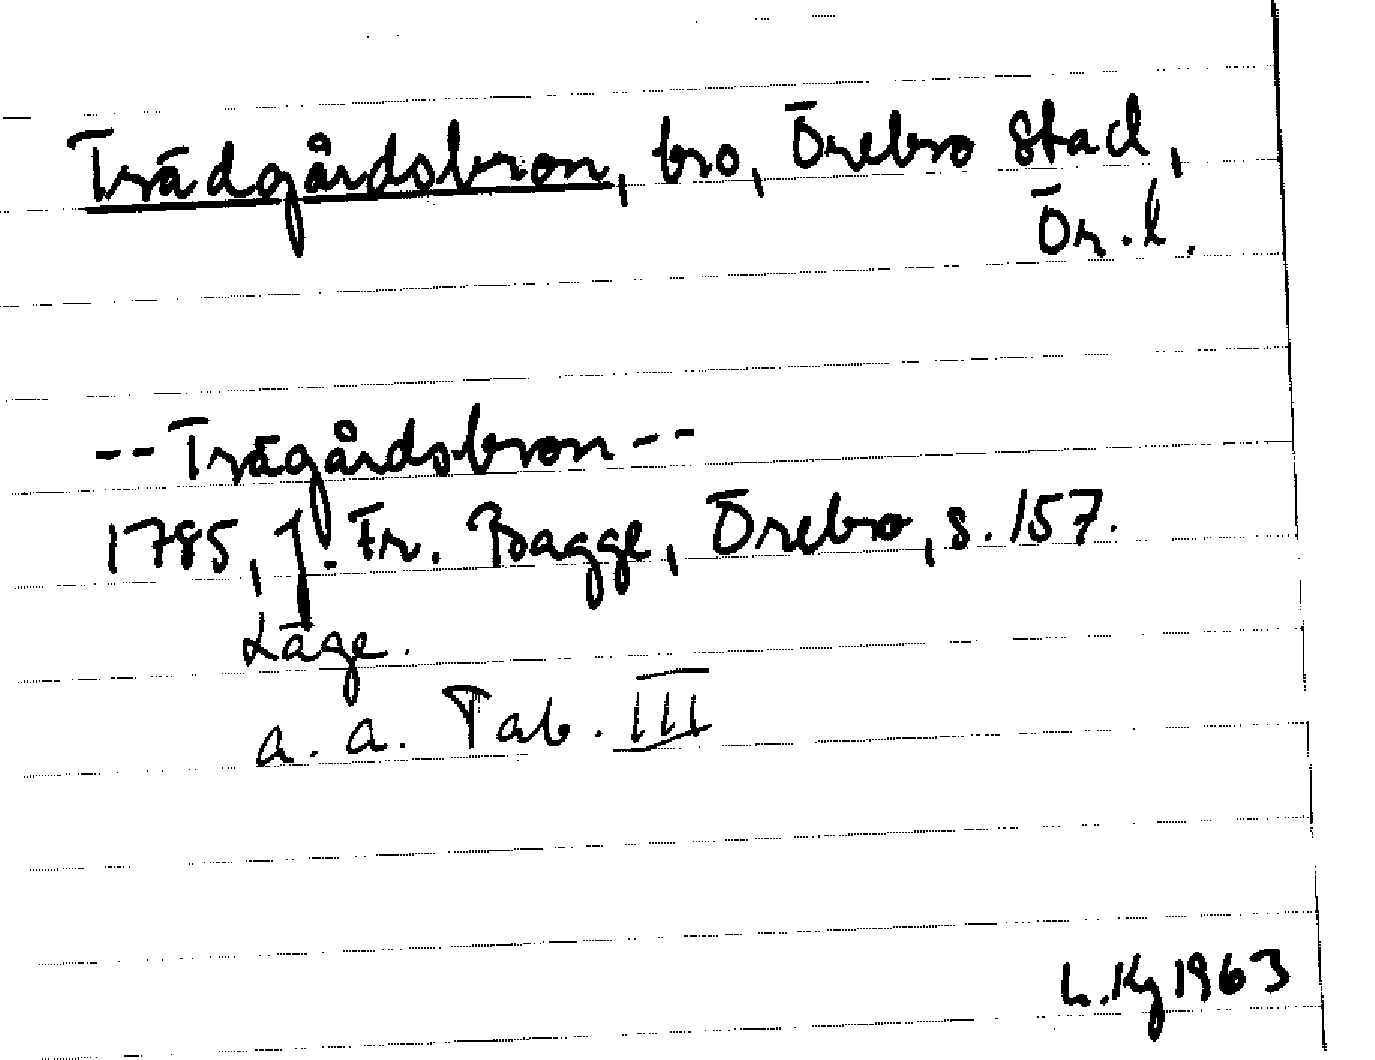 Trädgårdsbron, bro, Örebro stad,
Ör. l.
-- Trägårdsbron --
1785, J. Fr. Bagge, Örebro, s. 157.
Läge.
a. a. Tab. III
L. Kg 1963